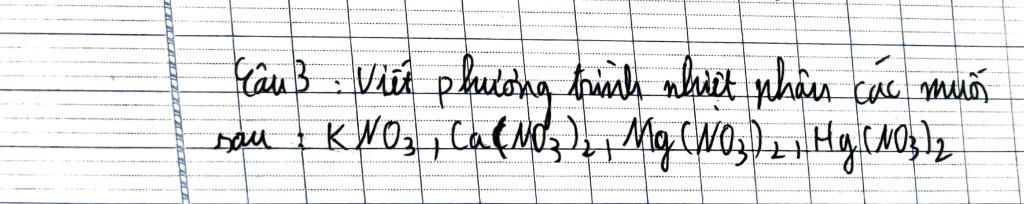 Câu 3 : Viết phương trình nhiệt phân các muối
sau : KNO₃, Ca(NO₃)₂, Mg(NO₃)₂, Hg(NO₃)₂